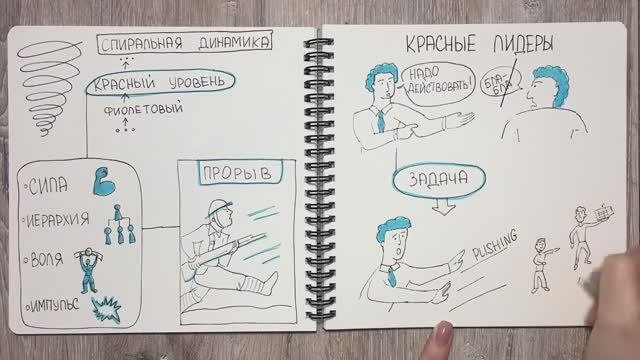 СПИРАЛЬНАЯ ДИНАМИКА
КРАСНЫЙ УРОВЕНЬ
ФИОЛЕТОВЫЙ
СИЛА
ИЕРАРХИЯ
ВОЛЯ
ИМПУЛЬС
ПРОРЫВ
КРАСНЫЕ ЛИДЕРЫ
НАДО
ДЕЙСТВОВАТЬ!
БЛА-
БЛА
ЗАДАЧА
PUSHING